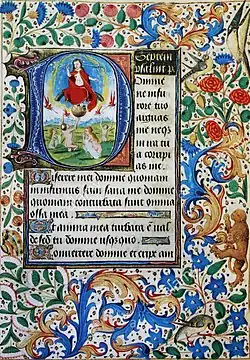 Septem
psalmi p
Domine
ne in fu
rore tuo
arguas
me neqz
in ira tu
a corripi
as me.
Miserere mei domine quoniam
infirmus sum sana me domine
quoniam conturbata sunt omnia
ossa mea.
Et anima mea turbata e ual
de sed tu domine usqz quo.
Conuertere domine et eripe ani